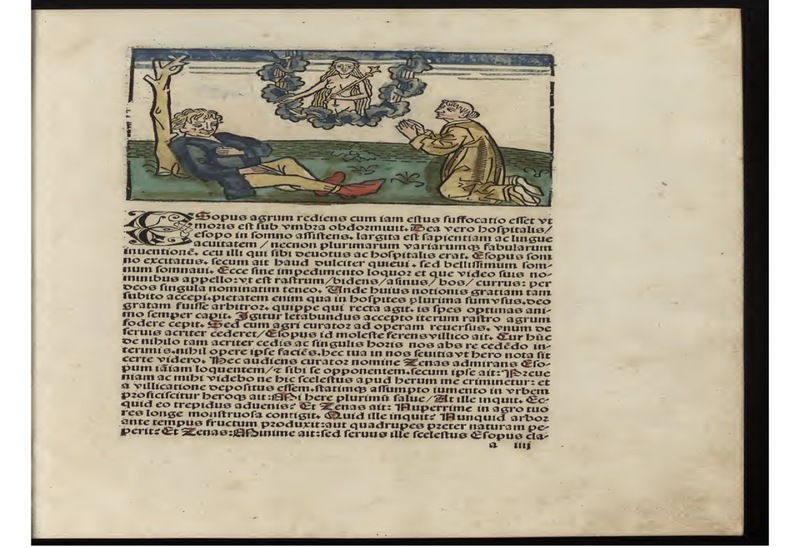 Esopus agrum rediens cum iam estus suffocatio esset vt
moris est sub vmbra obdormiuit. Dea vero hospitalis/
esopo in somno assistens. largita est sapientiam ac lingue
acuitatem / necnon plurimarum variarumqꝫ fabularum
inuentionē. ceu illi qui sibi deuotus ac hospitalis erat. Esopus som
no excitatus. secum ait haud dulciter quieui. sed bellissimum som-
num somnaui. Ecce sine impedimento loquor et que video suis no-
minibus appello: vt est rastrum/bidens/asinus/bos/currus: per
deos singula nominatim teneo. Unde huius notionis gratiam tam
subito accepi. pietatem enim qua in hospites plurima sum vsus. deo
gratam fuisse arbitror. quippe qui recta agit. is spes optimas ani-
mo semper capit. Igitur letabundus accepto iterum rastro agrum
fodere cepit. Sed cum agri curator ad operam reuersus. vnum de
seruis acriter cederet/Esopus id moleste ferens villico ait. Cur hūc
de nihilo tam acriter cedis ac singulis horis nos abs re cedēdo in-
terimis. nihil opere ipse faciēs. hec tua in nos seuitia vt hero nota sit
certe videro. Hec audiens curator nomine Zenas admirans Eso-
pum iā tam loquentem/⁊ sibi se opponentem. secum ipse ait: Preue
niam ac mihi videbo ne hic scelestus apud herum me criminetur: et
a villicatione depositus essem. statimqꝫ assumpto iumento in vrbem
proficiscitur heroqꝫ ait: Mi here plurimū salue/At ille inquit. Ec-
quid eo trepidus aduenis? Et Zenas ait: Nuperrime in agro tuo
res longe monstruosa contigit. Quid ille inquit? Nunquid arbor
ante tempus fructum produxit: aut quadrupes preter naturam pe-
perit? Et Zenas: Minime ait: sed seruus ille scelestus Esopus cla-
a iiij